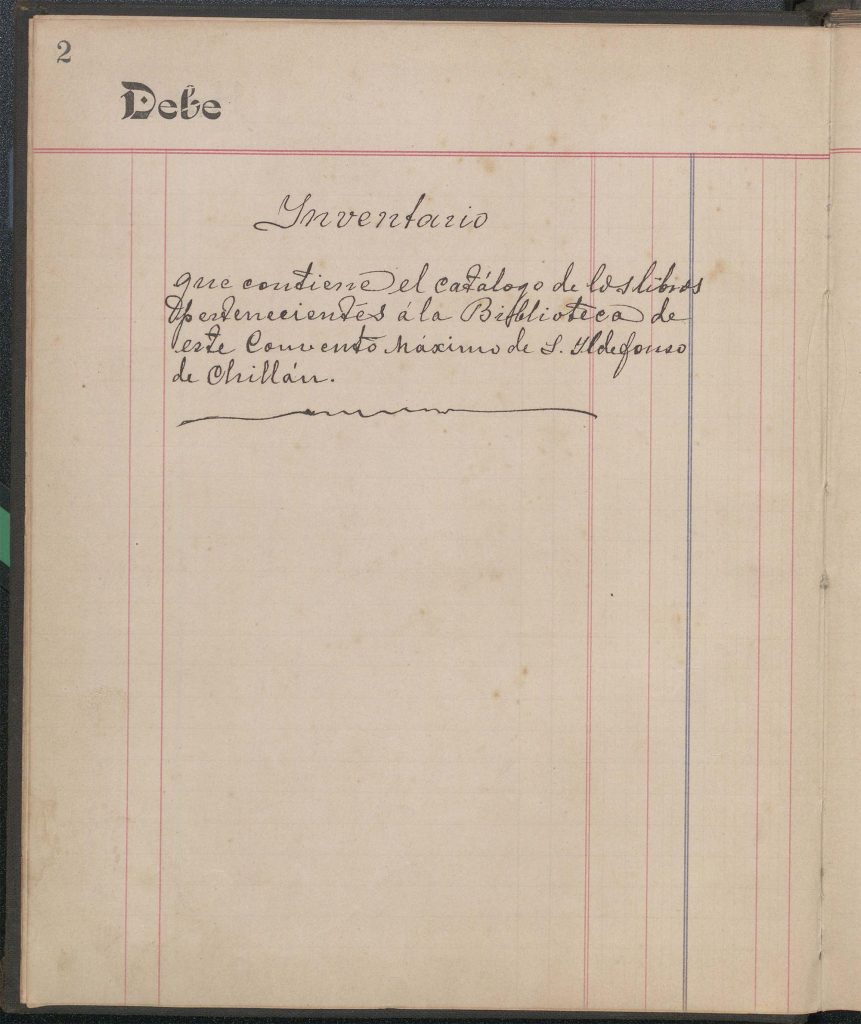 2
Debe
Inventario
que contiene el catálogo de los libros
pertenecientes á la Biblioteca de
este Convento Máximo de S. Ildefonso
de Chillán.